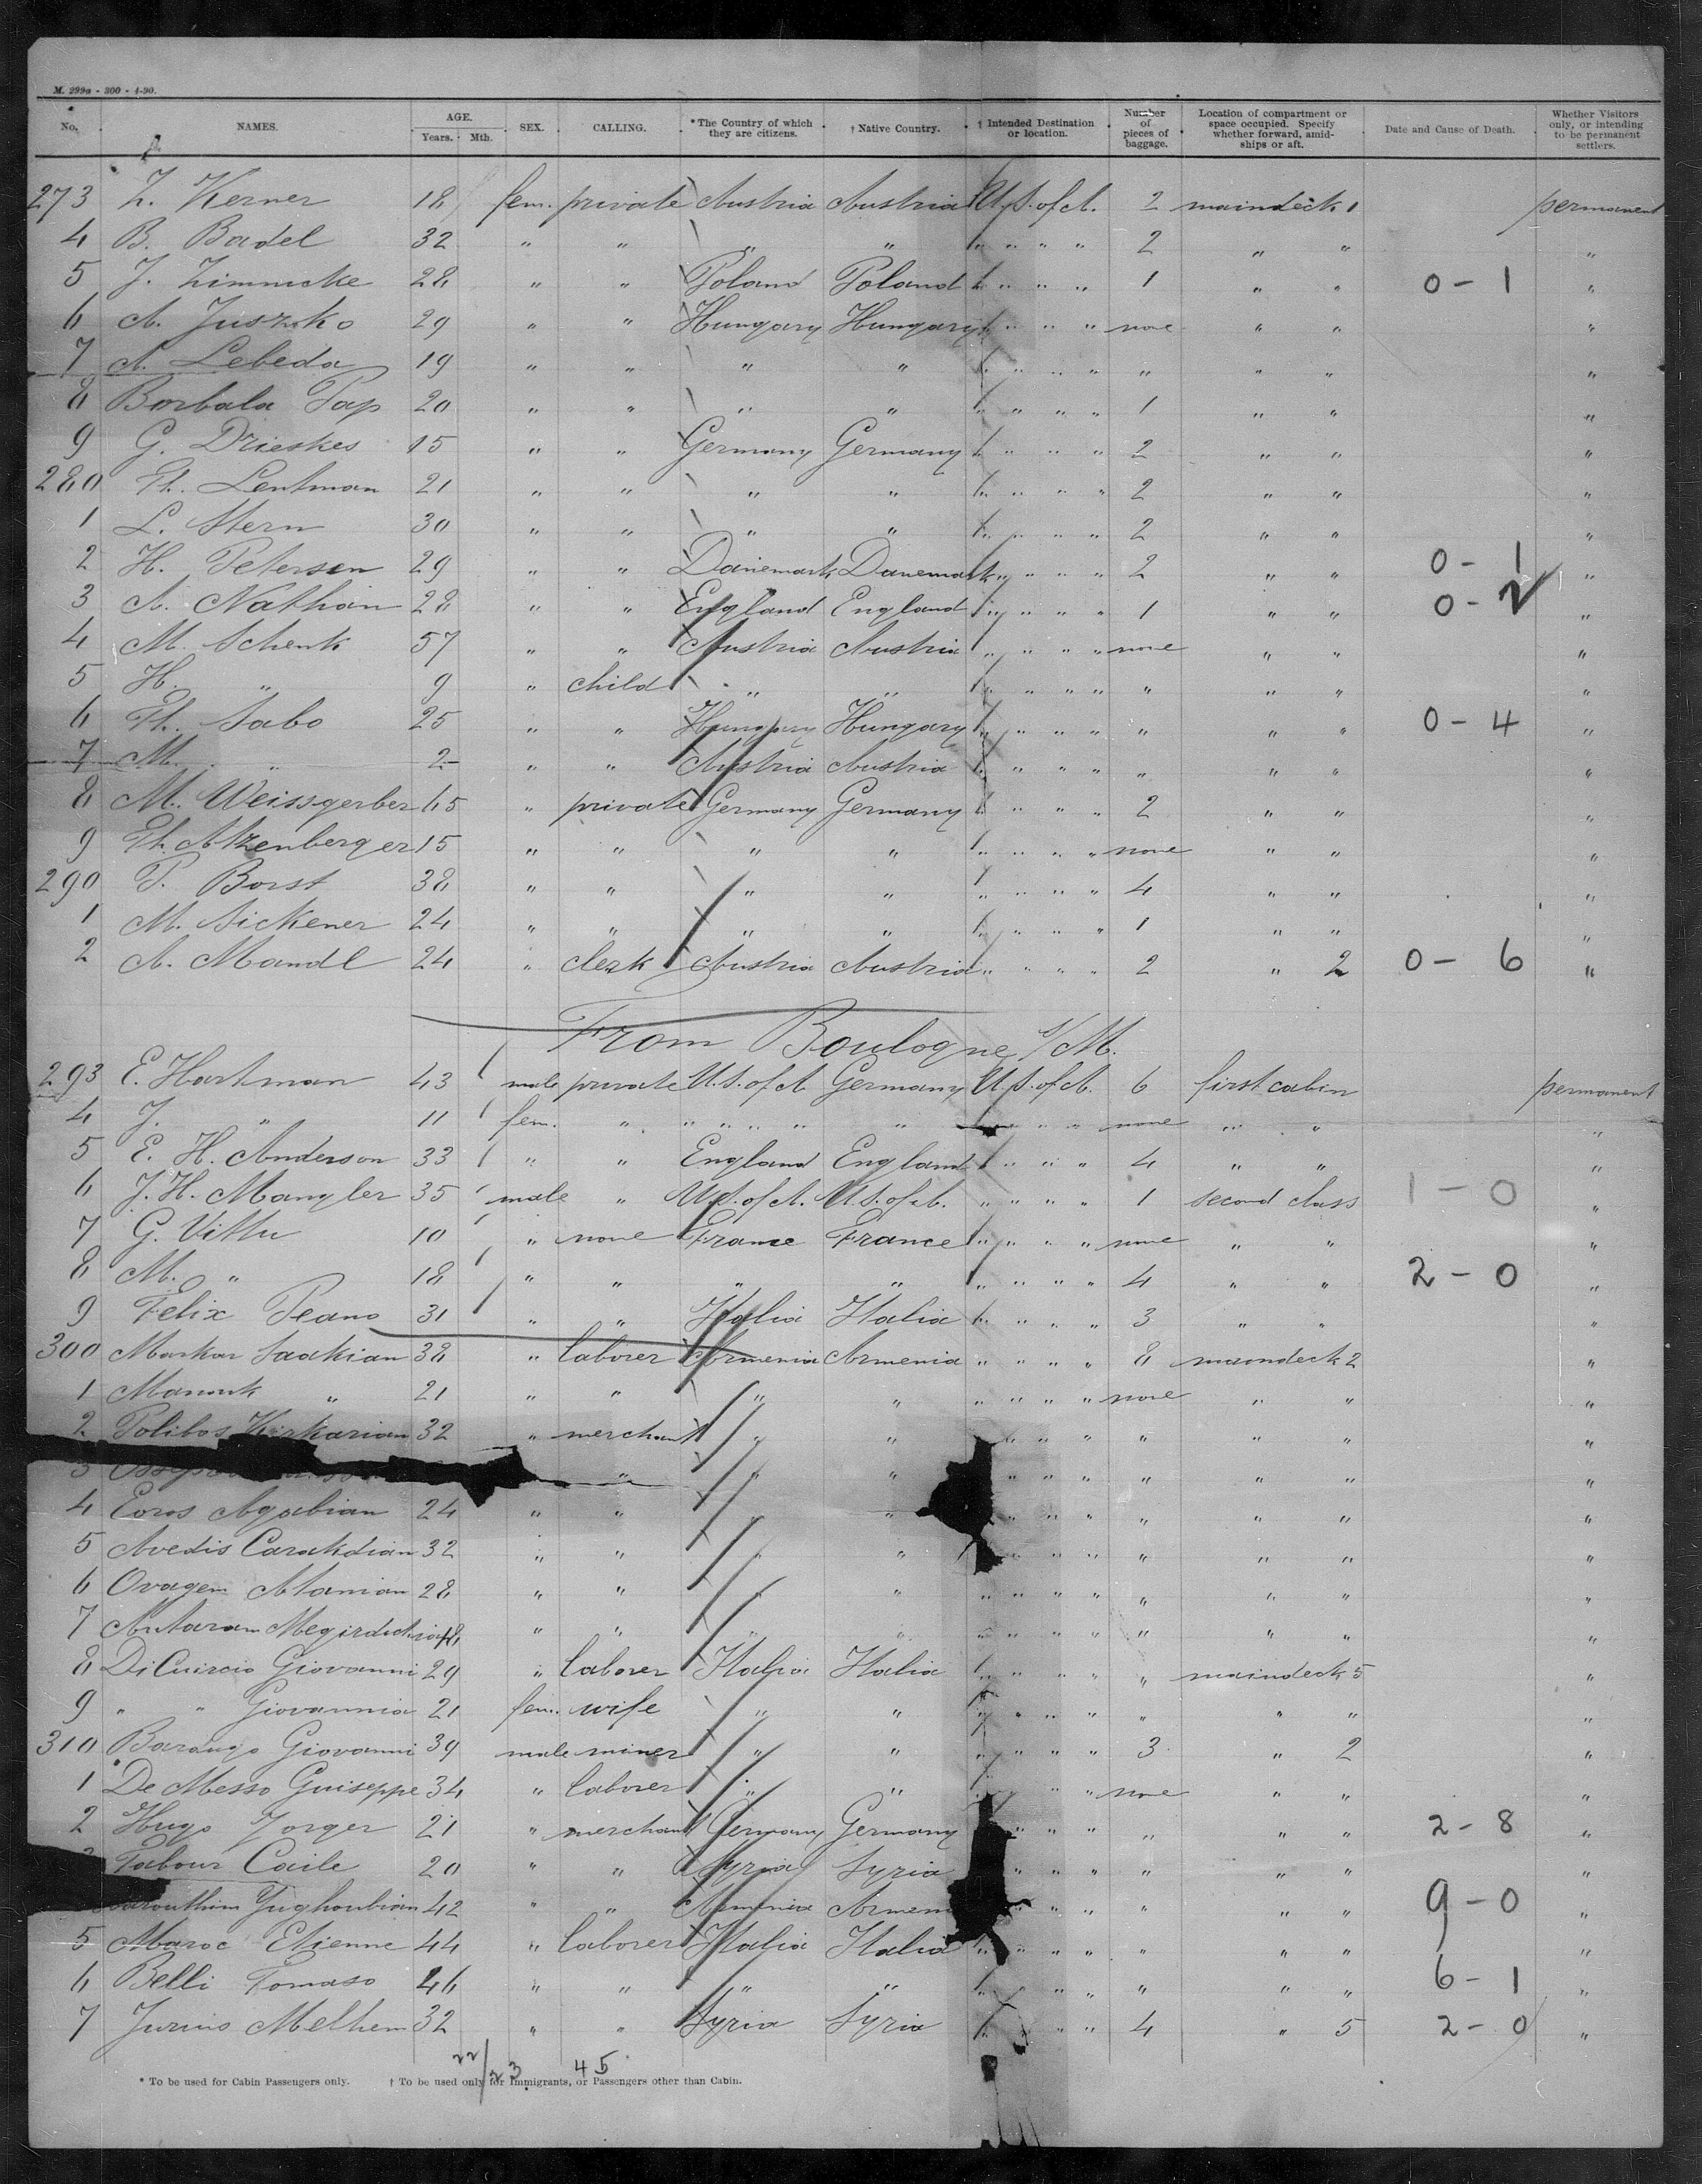 M. 299a - 300 - 4-90.
No. NAMES. AGE. Years. Mth. SEX. CALLING. *The Country of which they are citizens. † Native Country. † Intended Destination or location. Number of pieces of baggage. Location of compartment or space occupied. Specify whether forward, amid-ships or aft. Date and Cause of Death. Whether Visitors only, or intending to be permanent settlers.
273 Z. Kerner 18 fem. private Austria Austria U.S. of A. 2 maindeck 1 permanent
4 B. Badel 32 " " " " " " " " 2 " " "
5 J. Zimnicke 28 " " Poland Poland " " " " 1 " " 0 - 1 "
6 A. Juszko 29 " " Hungary Hungary " " " " none " " "
7 A. Lebeda 19 " " " " " " " " " " " "
8 Borbala Pap 20 " " " " " " " " 1 " " "
9 G. Drieskes 15 " " Germany Germany " " " " 2 " " "
280 Th. Lentman 21 " " " " " " " " 2 " " "
1 L. Stern 30 " " " " " " " " 2 " " "
2 H. Petersen 29 " " Danemark Danemark " " " " 2 " " 0 - 1 "
3 A. Nathan 28 " " England England " " " " 1 " " 0 - 2 "
4 M. Schenk 57 " " Austria Austria " " " " none " " "
5 H. " 9 " child " " " " " " " " " "
6 Th. Sabo 25 " " Hungary Hungary " " " " " " " 0 - 4 "
7 M. " 2 " " Austria Austria " " " " " " " "
8 M. Weissgerber 65 " private Germany Germany " " " " 2 " " "
9 Th. Atzenberger 15 " " " " " " " " none " " "
290 P. Borst 38 " " " " " " " " 4 " " "
1 M. Sickener 24 " " " " " " " " 1 " " "
2 A. Mandl 24 " clerk Austria Austria " " " " 2 " 2 0 - 6 "
From Boulogne s/M.
293 E. Hartman 43 male private U.S. of A Germany U.S. of A. 6 first cabin permanent
4 J. " 11 fem. " " " " " " " " none " " "
5 E. H. Anderson 33 " " England England " " " " 4 " " "
6 J. H. Mangler 35 male " U.S. of A. U.S. of A. " " " " 1 second class 1 - 0 "
7 G. Vittu 10 " none France France " " " " none " " "
8 M. " 18 " " " " " " " " 4 " " 2 - 0 "
9 Felix Peano 31 " " Italia Italia " " " " 3 " " "
300 Markar Saakian 38 " laborer Armenia Armenia " " " " 8 maindeck 2 "
1 Manouk " 21 " " " " " " " " none " " "
2 Polibos Kirkarian 32 " merchant " " " " " " " " " "
3 " " " " " " " " " "
4 Eoros Agabian 24 " " " " " " " " " " "
5 Avedis Carakdian 32 " " " " " " " " " " "
6 Ovagem Alanian 28 " " " " " " " " " " "
7 Antaram Megirdichian 48 " " " " " " " " " " " "
8 Di Cuircio Giovanni 29 " laborer Italia Italia " " " " " maindeck 5 "
9 " " Giovannia 21 fem. wife " " " " " " " " " "
310 Barango Giovanni 39 male miner " " " " " " 3 " 2 "
1 De Messo Guiseppe 34 " laborer " " " " " " none " " "
2 Hugo Jorger 21 " merchant Germany Germany " " " " " " 2 - 8 "
Tabour Caile 20 " " Syria Syria " " " " " " "
Yughoubian 42 " " Armenia Armenia " " " " " " 9 - 0 "
5 Maroc Etienne 44 " laborer Italia Italia " " " " " " " "
6 Belli Tomaso 46 " " " " " " " " " " 6 - 1 "
7 Jurius Melhem 32 " " Syria Syria " " " 4 " 5 2 - 0 "
22/23 45
* To be used for Cabin Passengers only. † To be used only for Immigrants, or Passengers other than Cabin.